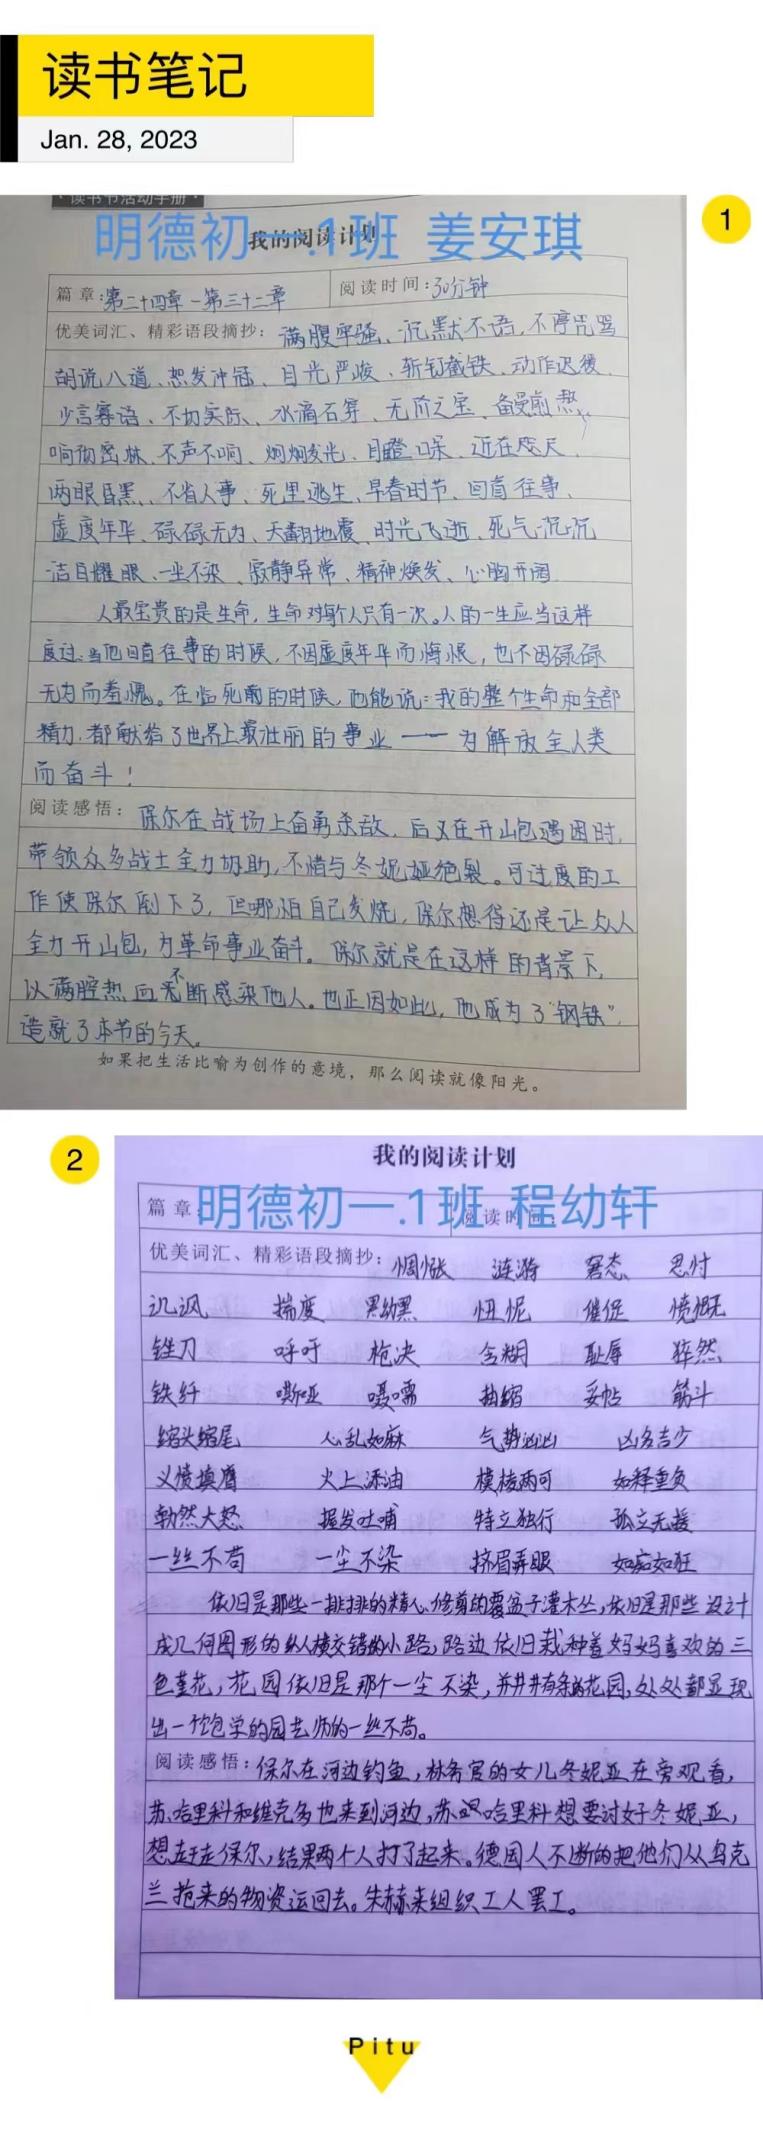 读书笔记
Jan. 28, 2023
1
·读书节活动手册·
我的阅读计划
明德初一.1班 姜安琪
篇章:第二十四章-第三十二章 阅读时间:30分钟
优美词汇、精彩语段摘抄:满腹牢骚、沉默不语、不停咒骂
胡说八道、怒发冲冠、目光严峻、斩钉截铁、动作迟缓、
少言寡语、不切实际、水滴石穿、无价之宝、备受煎熬、
响彻密林、不声不响、炯炯发光、目瞪口呆、近在咫尺、
两眼昏黑、不省人事、死里逃生、早春时节、回首往事、
虚度年华、碌碌无为、天翻地覆、时光飞逝、死气沉沉
洁白耀眼、一尘不染、寂静异常、精神焕发、心胸开阔
人最宝贵的是生命,生命对每个人只有一次。人的一生应当这样
度过:当他回首往事的时候,不因虚度年华而悔恨,也不因碌碌
无为而羞愧。在临死前的时候,他能说:我的整个生命和全部
精力,都献给了世界上最壮丽的事业——为解放全人类
而奋斗!
阅读感悟:保尔在战场上奋勇杀敌,后又在开山包遇困时,
带领众多战士全力协助,不惜与冬妮娅绝裂。可过度的工
作使保尔倒下了,但哪怕自己发烧,保尔想得还是让众人
全力开山包,为革命事业奋斗。保尔就是在这样的背景下,
以满腔热血不断感染他人。也正因如此,他成为了“钢铁”,
造就了本节的今天。
如果把生活比喻为创作的意境，那么阅读就像阳光。
2
我的阅读计划
明德初一.1班 程幼轩
篇章: 阅读时间:
优美词汇、精彩语段摘抄:惆怅 涟漪 窘态 思忖
讥讽 揣度 黑黝黝 忸怩 催促 愤慨
锉刀 呼吁 枪决 含糊 耻辱 猝然
铁钎 嘶哑 嗫嚅 抽缩 妥帖 筋斗
缩头缩尾 心乱如麻 气势汹汹 凶多吉少
义愤填膺 火上添油 模棱两可 如释重负
勃然大怒 握发吐哺 特立独行 孤立无援
一丝不苟 一尘不染 挤眉弄眼 如痴如狂
依旧是那些一排排的精心修剪的覆盆子灌木丛,依旧是那些设计
成几何图形的纵横交错的小路,路边依旧栽种着妈妈喜欢的三
色堇花,花园依旧是那个一尘不染,井井有条的花园,处处都显现
出一个饱学的园艺师的一丝不苟。
阅读感悟:保尔在河边钓鱼,林务官的女儿冬妮亚在旁观看,
苏哈里科和维克多也来到河边,苏哈里科想要讨好冬妮亚,
想赶走保尔,结果两个人打了起来。德国人不断的把他们从乌克
兰抢来的物资运回去。朱赫来组织工人罢工。
Pitu